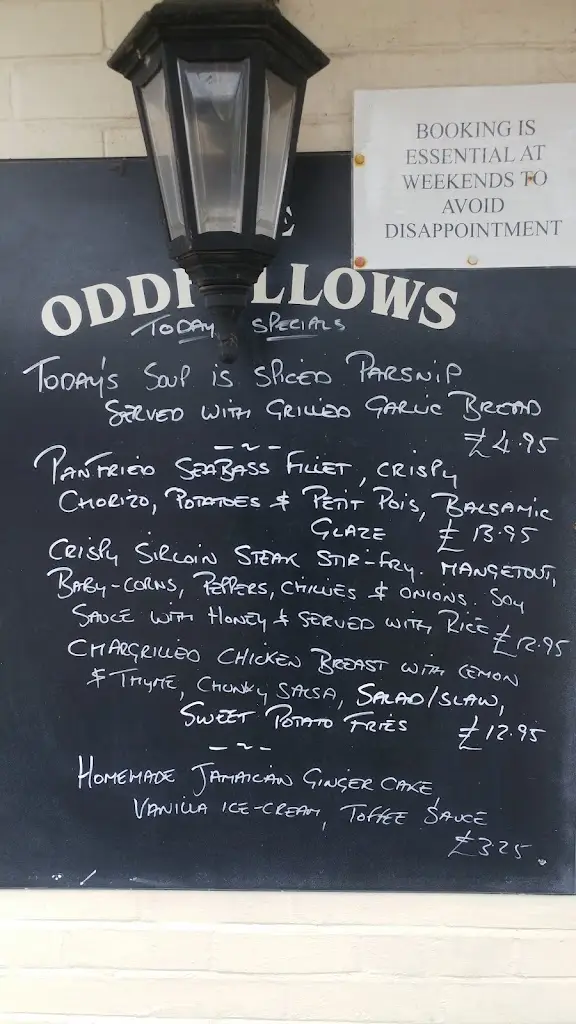 BOOKING IS
ESSENTIAL AT
WEEKENDS TO
AVOID
DISAPPOINTMENT
E
ODDF LLOWS
TODAY SPECIALS
TODAY'S SOUP IS SPICED PARSNIP
SERVED WITH GRILLED GARLIC BREAD
£4.95
PANFRIED SEABASS FILLET, CRISPY
CHORIZO, POTATOES & PETIT POIS, BALSAMIC
GLAZE £13.95
CRISPY SIRLOIN STEAK STIR-FRY. MANGETOUT,
BABY-CORNS, PEPPERS, CHILLIES & ONIONS. SOY
SAUCE WITH HONEY & SERVED WITH RICE £12.95
CHARGRILLED CHICKEN BREAST WITH LEMON
& THYME, CHUNKY SALSA, SALAD/SLAW,
SWEET POTATO FRIES £12.95
HOMEMADE JAMAICAN GINGER CAKE
VANILLA ICE-CREAM, TOFFEE SAUCE
£3.25.